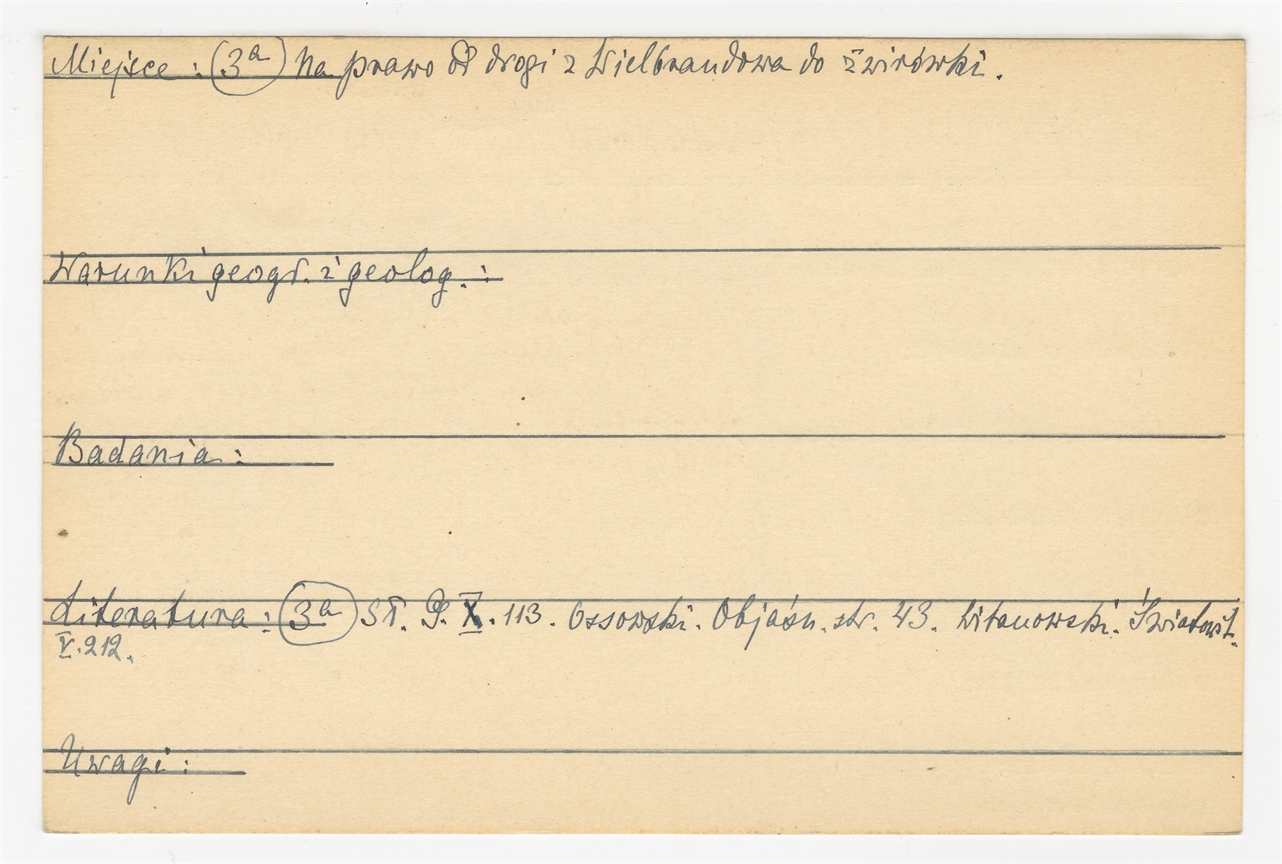 Miejsce : (3a) Na prawo od drogi z Wielbrandowa do żwirówki.
Warunki geogr. i geolog. :
Badania :
Literatura : (3a) Sł. G. X. 113. Ossowski. Objaśn. str. 43. Witanowski. Światowit.
V. 212.
Uwagi :